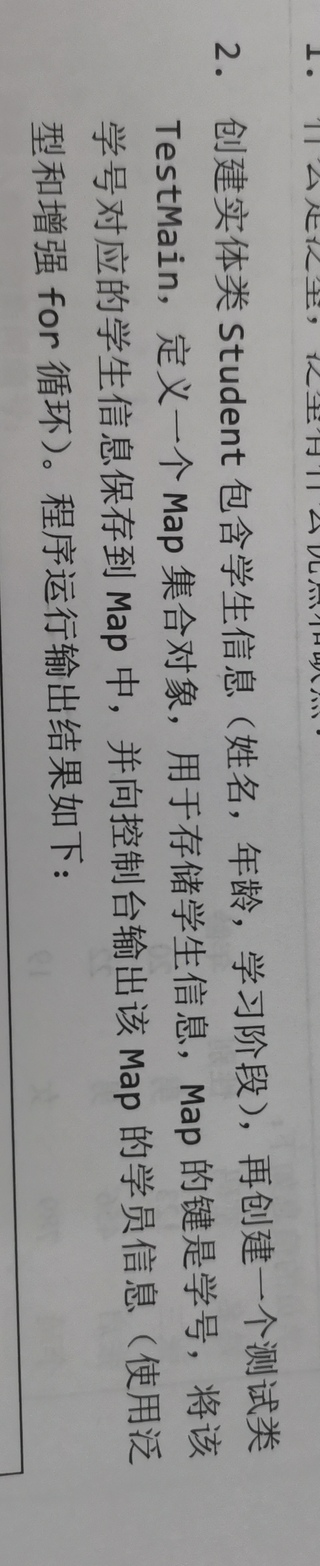 1. 什么是泛型，泛型有什么优点和缺点？
2. 创建实体类 Student 包含学生信息（姓名，年龄，学习阶段），再创建一个测试类
TestMain，定义一个 Map 集合对象，用于存储学生信息，Map 的键是学号，将该
学号对应的学生信息保存到 Map 中，并向控制台输出该 Map 的学员信息（使用泛
型和增强 for 循环）。程序运行输出结果如下：